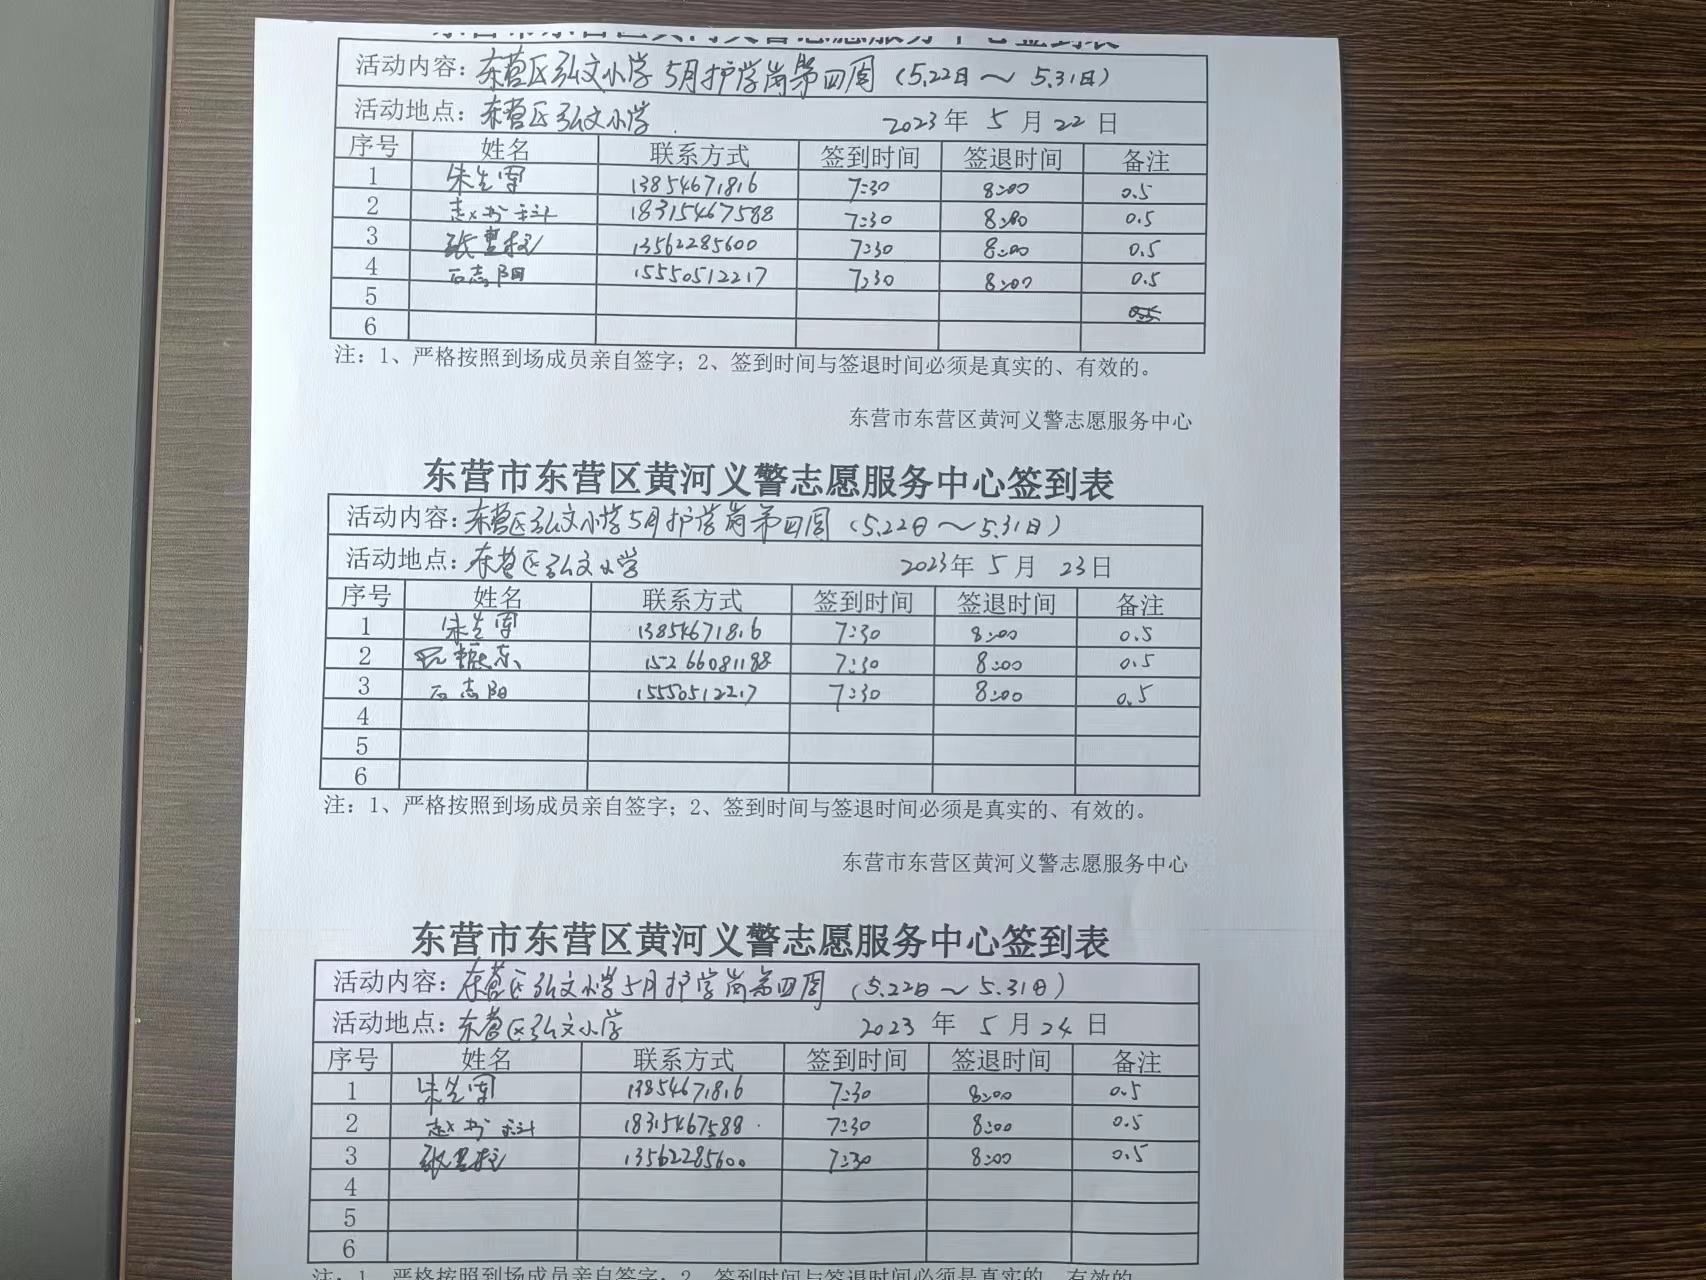 东营市东营区黄河义警志愿服务中心签到表
活动内容：东营区弘文小学5月护学岗第四周（5.22日～5.31日）
活动地点：东营区弘文小学 2023年5月22日
序号 姓名 联系方式 签到时间 签退时间 备注
1 朱先军 13854671816 7:30 8:00 0.5
2 18315467588 7:30 8:00 0.5
3 13562285600 7:30 8:00 0.5
4 石志阳 15550512217 7:30 8:00 0.5
5
6
注：1、严格按照到场成员亲自签字；2、签到时间与签退时间必须是真实的、有效的。
东营市东营区黄河义警志愿服务中心
东营市东营区黄河义警志愿服务中心签到表
活动内容：东营区弘文小学5月护学岗第四周（5.22日～5.31日）
活动地点：东营区弘文小学 2023年5月23日
序号 姓名 联系方式 签到时间 签退时间 备注
1 朱先军 13854671816 7:30 8:00 0.5
2 15266081188 7:30 8:00 0.5
3 石志阳 15550512217 7:30 8:00 0.5
4
5
6
注：1、严格按照到场成员亲自签字；2、签到时间与签退时间必须是真实的、有效的。
东营市东营区黄河义警志愿服务中心
东营市东营区黄河义警志愿服务中心签到表
活动内容：东营区弘文小学5月护学岗第四周（5.22日～5.31日）
活动地点：东营区弘文小学 2023年5月24日
序号 姓名 联系方式 签到时间 签退时间 备注
1 朱先军 13854671816 7:30 8:00 0.5
2 18315467588 7:30 8:00 0.5
3 13562285600 7:30 8:00 0.5
4
5
6
注：1、严格按照到场成员亲自签字；2、签到时间与签退时间必须是真实的、有效的。